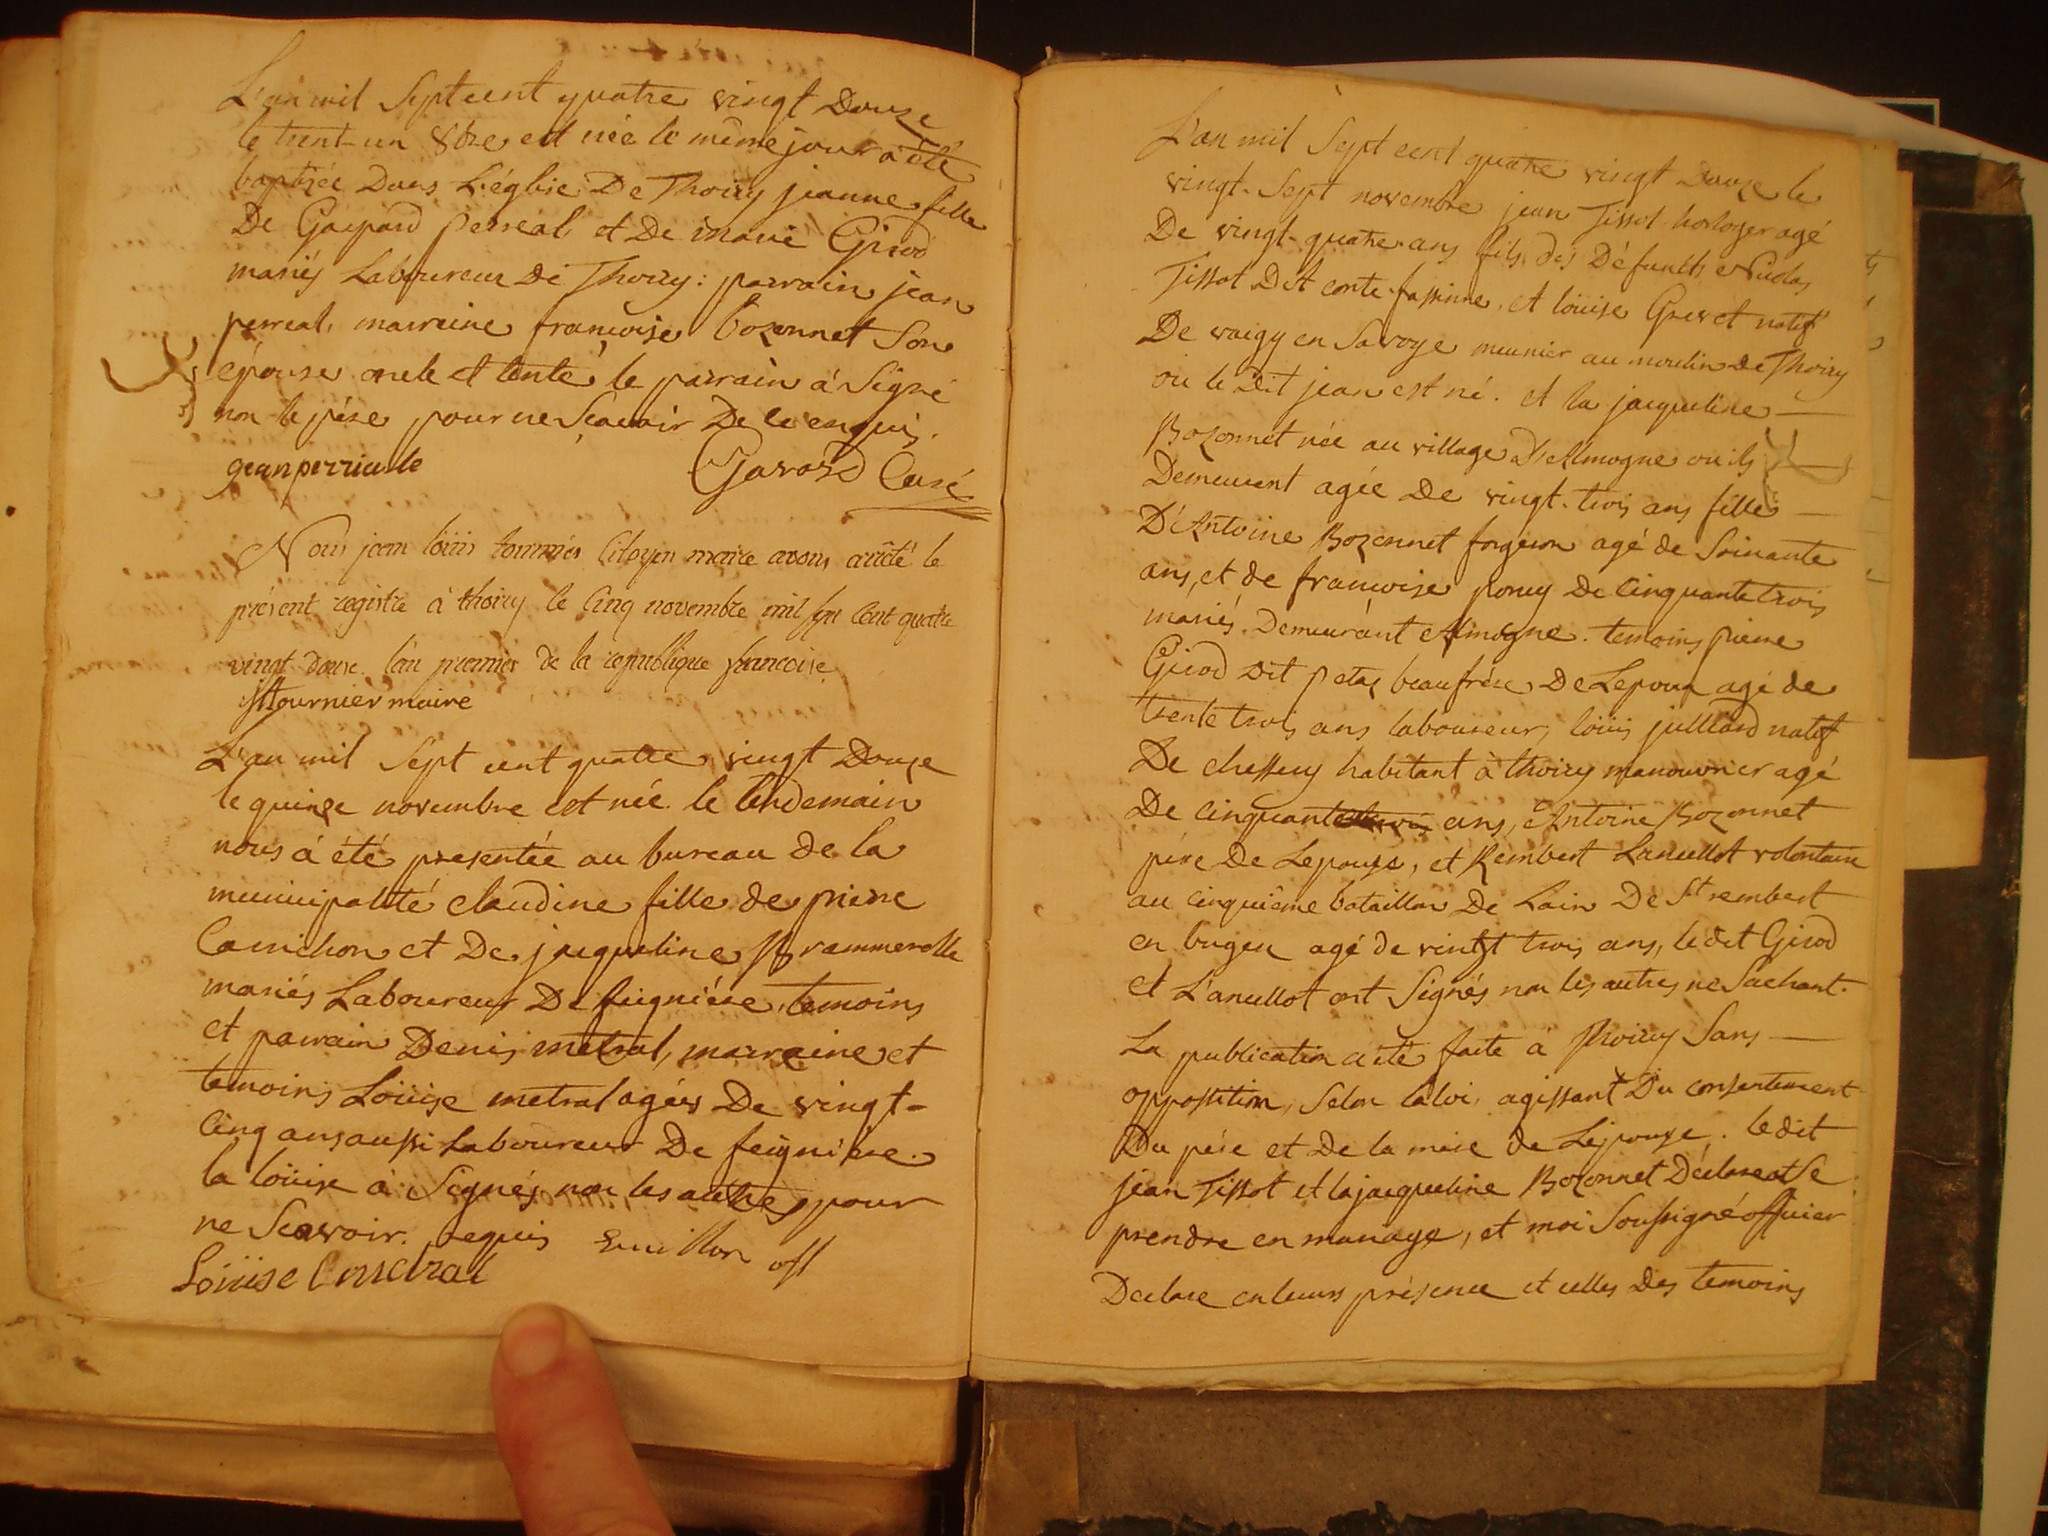 L'an mil Septcent quatre vingt Douze
le trent-un 8bre est née le même jour a été
baptisée Dans L'église De Thoiry jeanne fille
De Gaspard perreal et De marie Girod
mariés Laboureur De Thoiry: parrain jean
perreal, marreine françoise bozonnet Son
épouse oncle et tente le parrain á Signé
non le père pour ne Scavoir De ce enquis.
Gavard Curé
Nous jean loüis tournier Citoyen maire avons arrêté le
présent registre à thoiry le Cinq novembre mil sept Cent quatre
vingt douze l'an premier de la republique françoise
Tournier maire
L'an mil Sept cent quatre vingt Douze
le quinze novembre est née le lendemain
nous á été presentée au bureau de la
municipalité claudine fille de pierre
et De jacqueline
mariés Laboureur De feignière, temoins
et parrain Denis metral, marraine et
temoins Loüise metral agées De vingt-
Cinq ans aussi Laboureur De feignière.
la loüise á Signés non les autres pour
ne Scavoir. requis off
Loüise
L'an mil Sept cent quatre vingt Douze le
vingt-Sept novembre jean Tissot horloger agé
De vingt-quatre ans fils des Défunts
Tissot Dit conte et loüise natif
De en Savoye meunier au moulin De Thoiry
ou le Dit jean est né. et la jacqueline —
Bozonnet née au village D'Almogne ou ils —
Demeurent agée De vingt-trois ans fille —
D'Antoine Bozonnet forgeron agé de Soixante
ans, et de françoise De Cinquante trois
mariés Demeurant Almogne. temoins pierre
Girod Dit beaufrère De Lepoux agé de
trente trois ans laboureur, loüis julliard natif
De chessery habitant à thoiry manouvrier agé
De Cinquante ans, Antoine Bozonnet
père De Lepouse, et Rembert Lanullot volontaire
au Cinquième bataillon De Lain De St rembert
en bugey agé de vingt trois ans, ledit Girod
et L'anullot ont Signés non les autres ne Sachant.
La publication a été faite à Thoiry Sans —
oppossition, Selon la loi, agissant Du consentement
Du père et De la mère de Lépouse. ledit
jean Tissot et la jacqueline Bozonnet Déclarent Se
prendre en mariage, et moi Soussigné officier
Declare en leurs présence et celles Des temoins